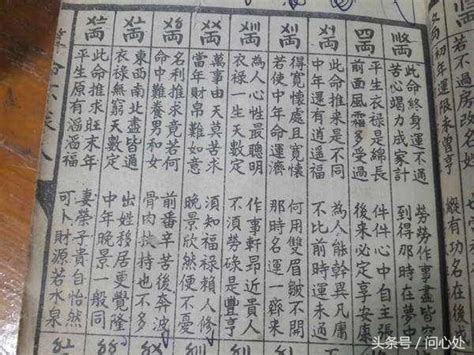 若不過房改名
初年運限未曾亨
縱有功名在
此命終身運不通
勞勞作事盡皆空
苦心竭力成家計
到得那時在夢中
四両
平生衣祿是綿長
件件心中自主張
前面風霜多受過
後來必定享安康
此命推來是不同
為人能幹異凡庸
中年還有逍遙福
不比前時運未通
得寬懷處且寬懷
何用雙眉皺不開
若使中年命運濟
那時名運一齊來
為人心性最聰明
作事軒昂近貴人
衣祿一生天數定
不須勞碌是豐亨
萬事由天莫苦求
須知福祿賴人修
當年財帛難如意
晚景欣然便不憂
名利推求竟若何
前番辛苦後奔波
命中難養男和女
骨肉扶持也不多
東西南北盡皆通
出姓移居更覺隆
衣祿無窮天數定
中年晚景一般同
此命推求旺末年
妻榮子貴自怡然
平生原有滔滔福
可卜財源若水泉
头条号 / 问心处